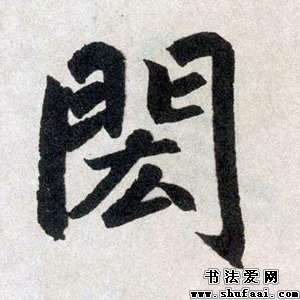 閎
书法爱网
www.shufaai.com